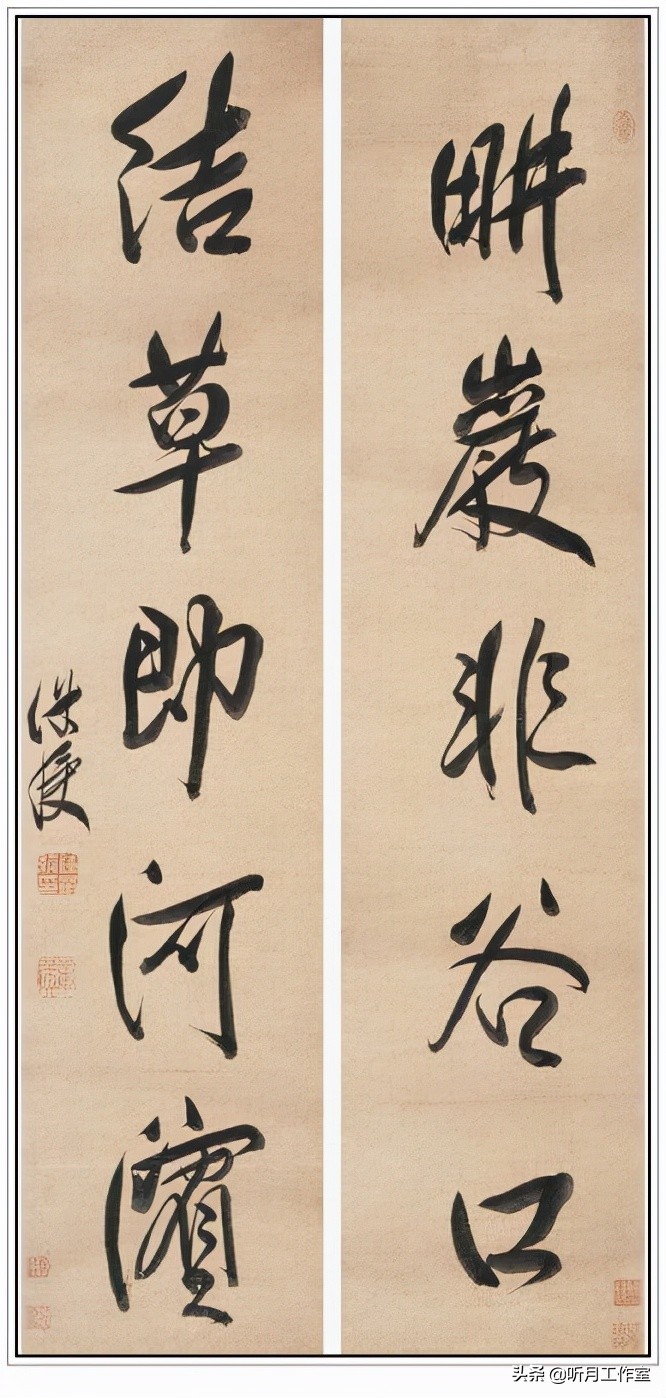 畊巖非谷口
結草即河濱
头条 @听月工作室